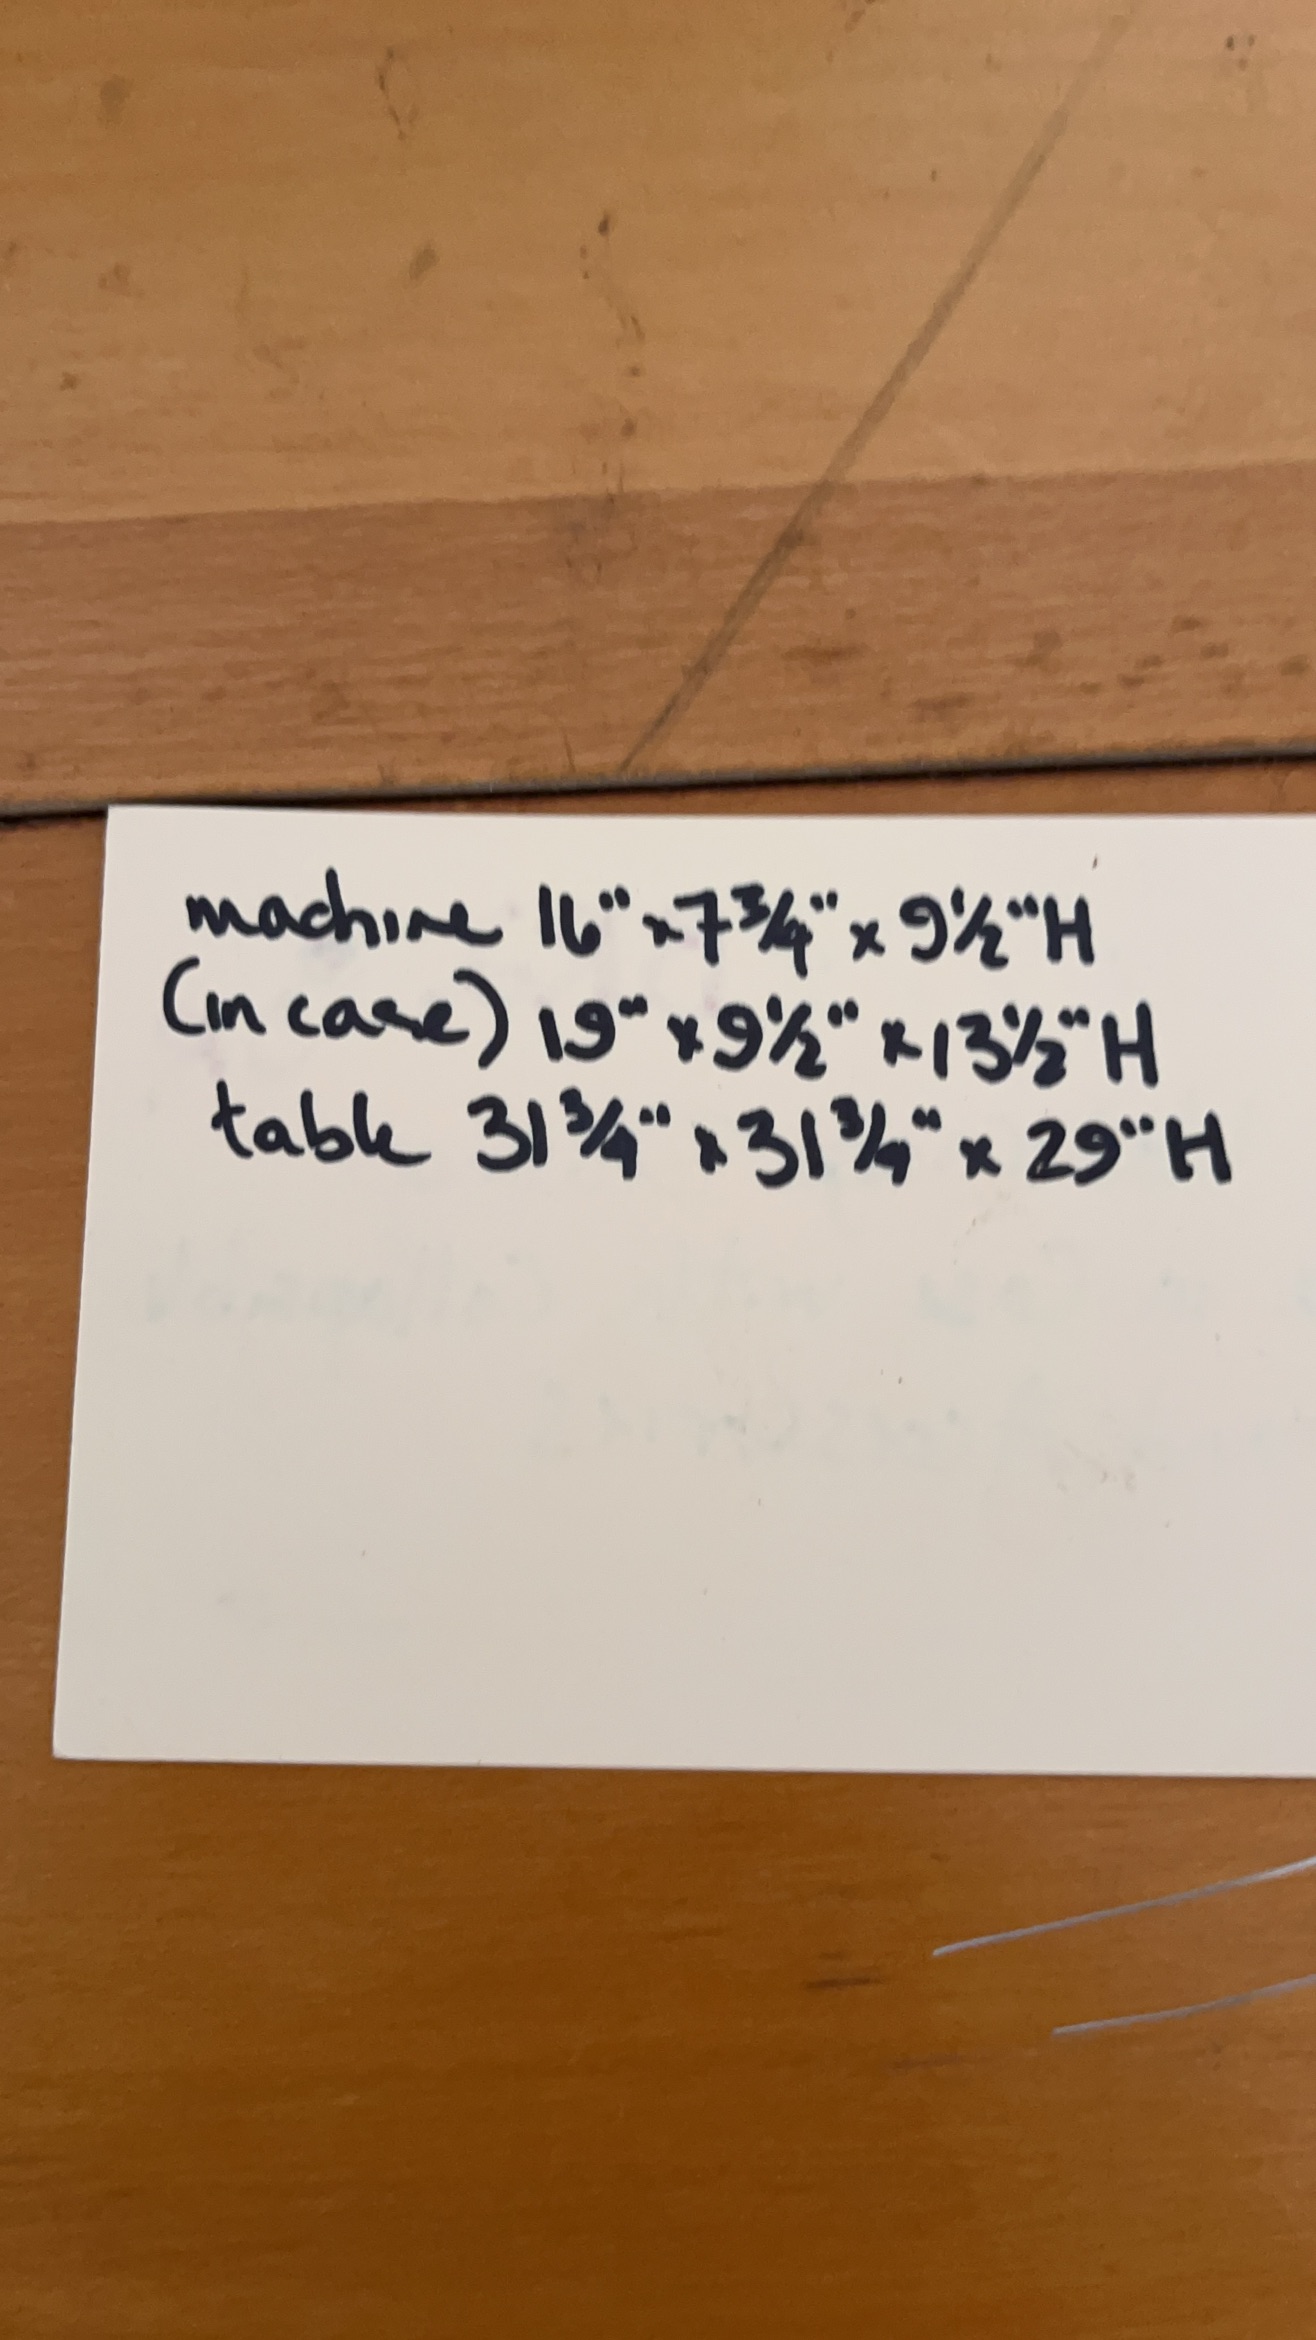 machine 16" x 7 3/4" x 9 1/2" H
(in case) 19" x 9 1/2" x 13 1/2" H
table 31 3/4" x 31 3/4" x 29" H